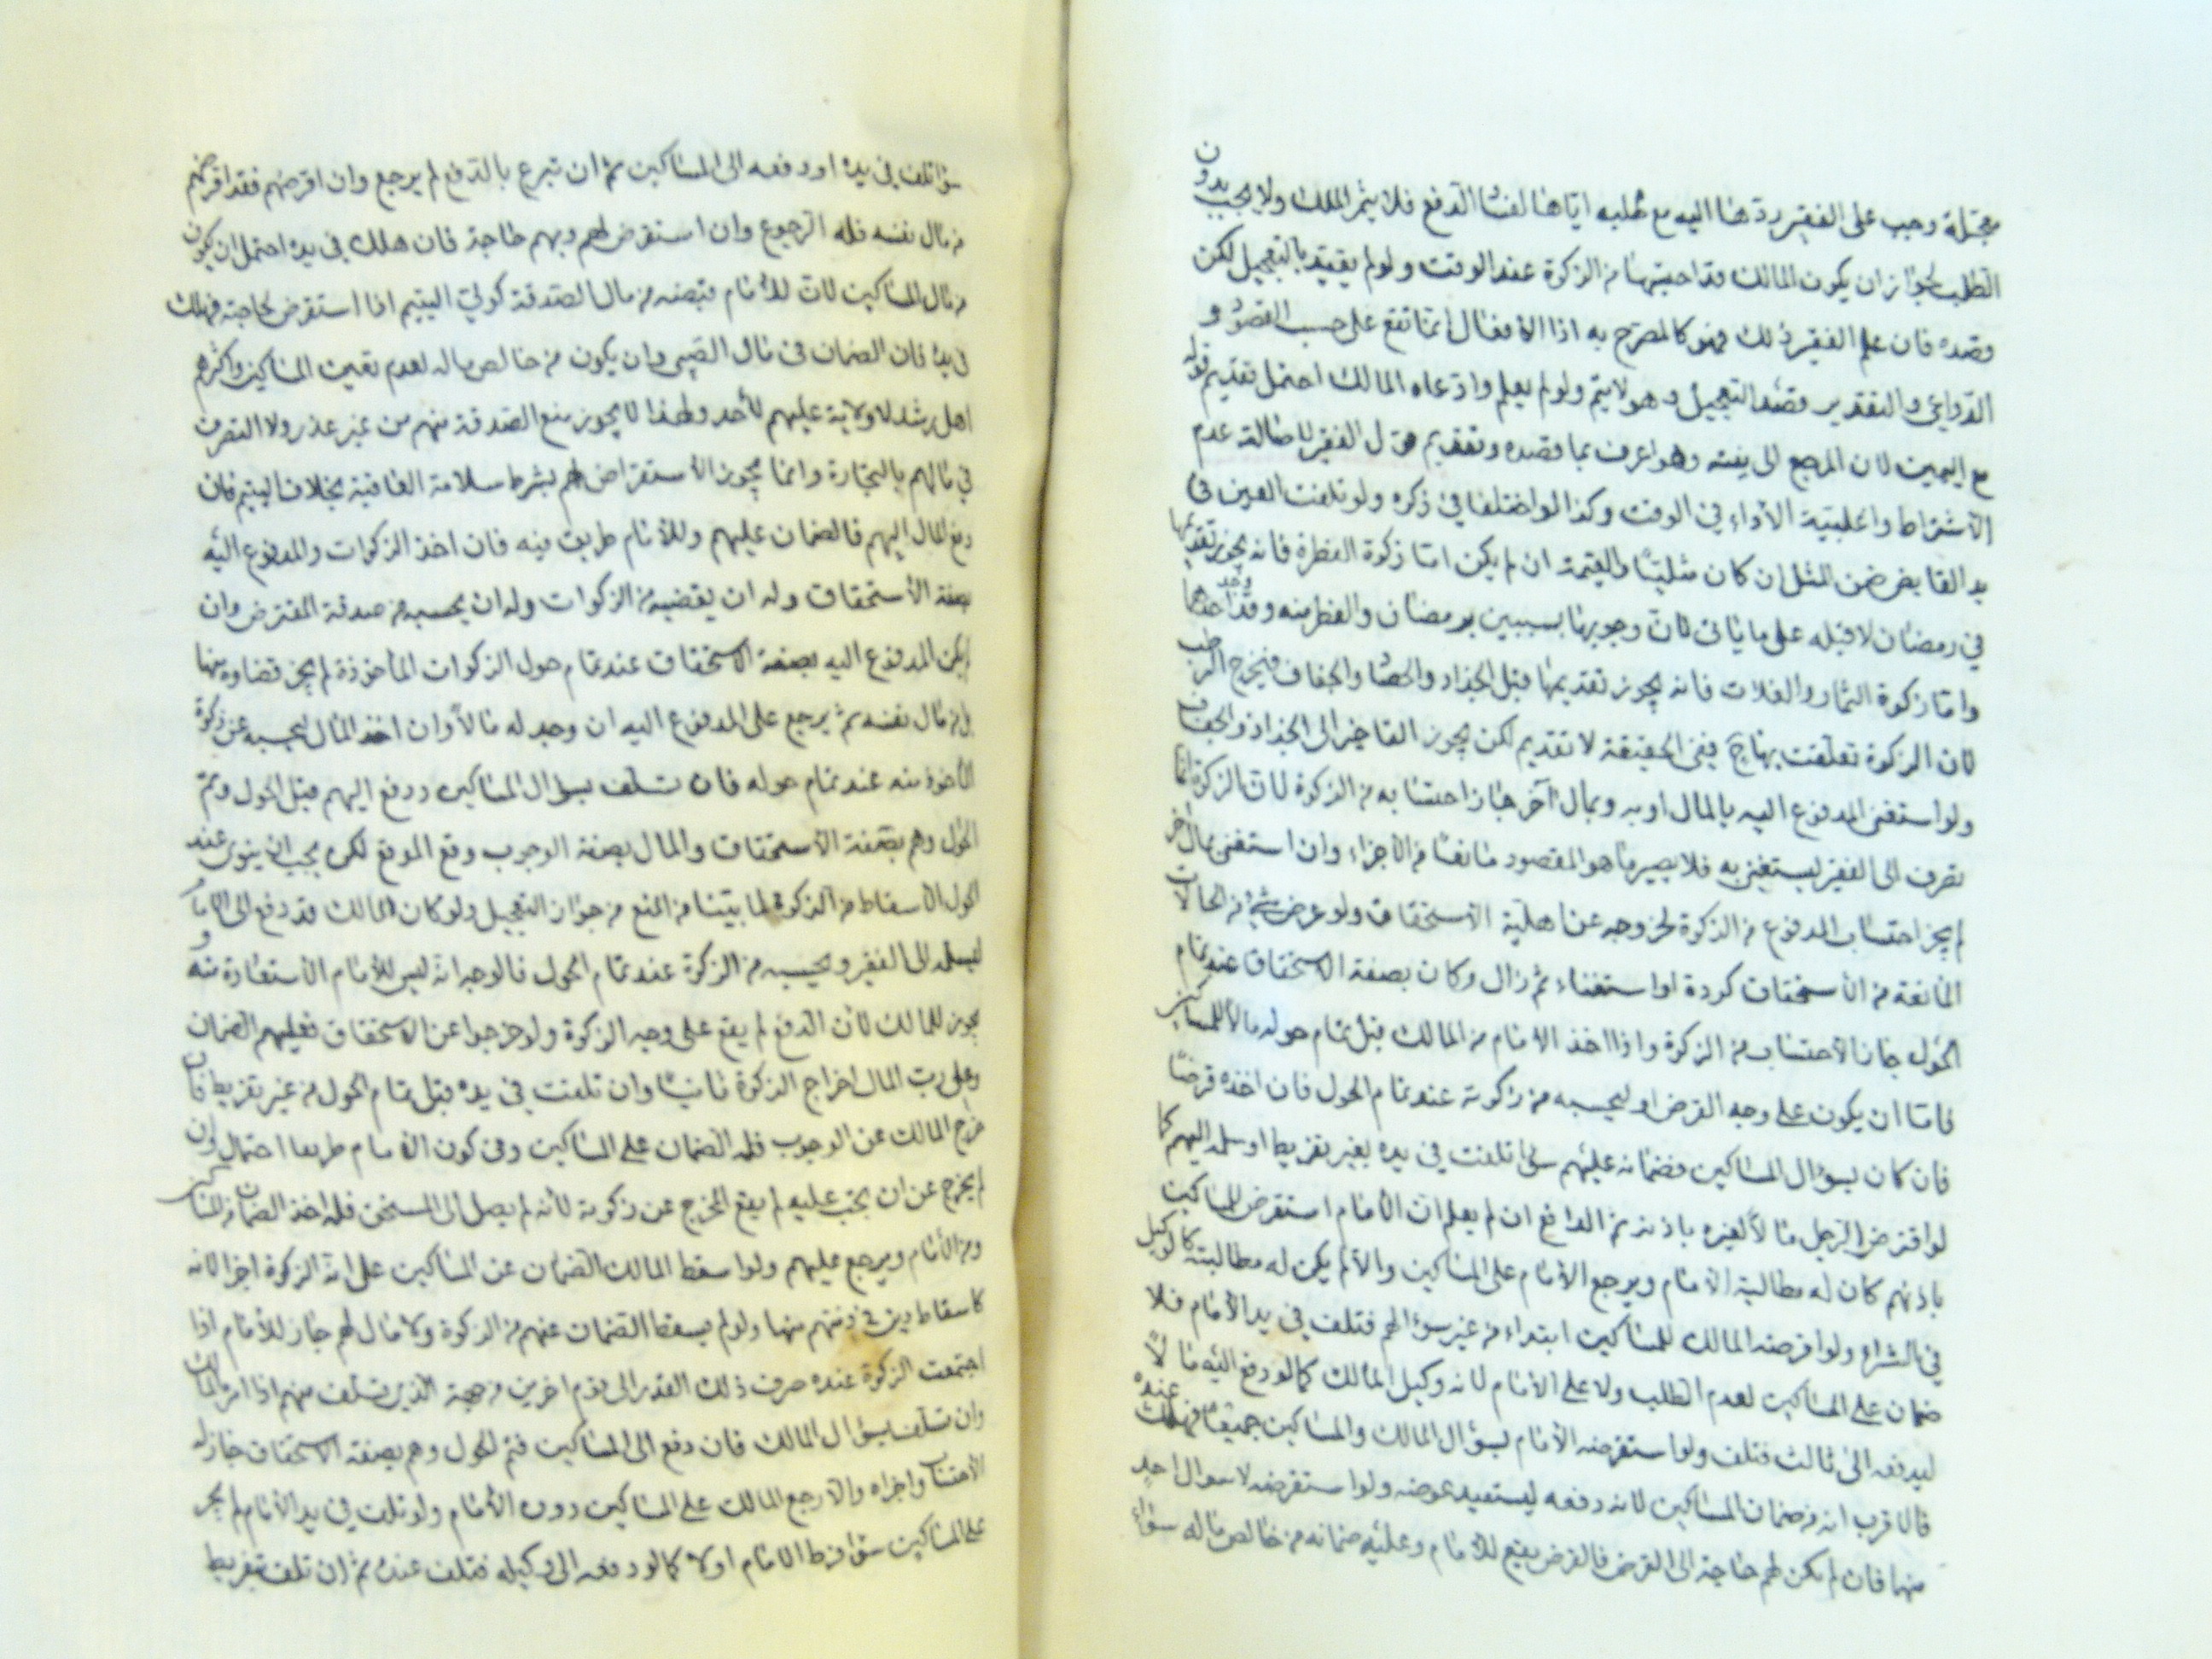 معجلة وجب على الفقير ردها اليه مع طلبه اياها لفساد الدفع فلا يثمر الملك ولا يجب بدون
الطلب لجواز ان يكون المالك قد احتسبها من الزكوة عند الوقت ولو لم يقيده بالتعجيل لكن
قصده فان علم الفقير ذلك فهو كالمصرح به اذا الافعال انما تقع على حسب القصود و
الدواعي والتقدير قصد التعجيل وهو لا يتم ولو لم يعلم وادعاه المالك احتمل تقديم قوله
مع اليمين لان المرجع الى نيته وهو اعرف بما قصده وتقديم قول الفقير لاصالة عدم
الاشتراط واغلبية الأداء في الوقت وكذا لو اختلفا في ذكره ولو تلفت العين في
يد القابض ضمن المثل ان كان مثليا والقيمة ان لم يكن اما زكوة الفطرة فانه يجوز تقديمها
في رمضان لا قبله على ما ياتى لان وجوبها بسببين رمضان والفطر منه وقد وجد احدهما
واما زكوة الثمار والغلات فانه يجوز تقديمها قبل الجذاذ والحصاد والجفاف فيخرج الرطب
لان الزكوة تعلقت بها ح ففي الحقيقة لا تقديم لكن يجوز التاخير الى الجذاذ والجفاف
ولو استغنى المدفوع اليه بالمال او به وبمال آخر جاز احتسابه من الزكوة لان الزكوة انما
تصرف الى الفقير ليستغني به فلا يصير ما هو المقصود مانعا من الاجزاء وان استغنى بمال آخر
لم يجز احتساب المدفوع من الزكوة لخروجه عن اهلية الاستحقاق ولو عرض شيء من الحالات
المانعة من الاستحقاق كردة او استغناء ثم زال وكان بصفة الاستحقاق عند تمام
الحول جاز الاحتساب من الزكوة واذا اخذ الامام من المالك قبل تمام حوله مالا للمساكين
فاما ان يكون على وجه القرض او ليحسبه من زكوته عند تمام الحول فان اخذه قرضا
فان كان بسؤال المساكين فضمانه عليهم سواء تلفت في يده بغير تفريط او سلمه اليهم كما
لو اقترض الرجل مالا لغيره باذنه ثم الدافع ان لم يعلم ان الامام استقرض للمساكين
باذنهم كان له مطالبة الامام ويرجع الامام على المساكين والا لم يكن له مطالبته كالوكيل
في الشراء ولو اقرضه المالك للمساكين ابتداء من غير سؤالهم فتلف في يد الامام فلا
ضمان على المساكين لعدم الطلب ولا على الامام لانه وكيل المالك كما لو دفع اليه مالا
ليدفعه الى ثالث فتلف ولو استقرضه الامام بسؤال المالك والمساكين جميعا فهلك عنده
فالاقرب انه من ضمان المساكين لانه دفعه ليستفيد عوضه ولو استقرضه لا بسوال احد
منهما فان لم يكن لهم حاجة الى القرض فالقرض يقع للامام وعليه ضمانه من خالص ماله سواء
سواء تلف في يده او دفعه الى المساكين ثم ان تبرع بالدفع لم يرجع وان اقرضهم فقد اقرضهم
من مال نفسه فله الرجوع وان استقرض لهم وبهم حاجة فان هلك في يده احتمل ان يكون
من مال المساكين لان للامام قبضه من مال الصدقة كولي اليتيم اذا استقرض لحاجته فهلك
في يده فان الضمان في مال الصبي وان يكون من خالص ماله لعدم تعين المساكين واكثرهم
اهل رشد لا ولاية عليهم لأحد ولهذا لا يجوز منع الصدقة منهم من غير عذر ولا التصرف
في مالهم بالتجارة وانما يجوز الاستقراض لهم بشرط سلامة العاقبة بخلاف اليتيم فان
دفع المال اليهم فالضمان عليهم وللامام طريق فيه فان اخذ الزكوات والمدفوع اليه
بصفة الاستحقاق وله ان يقضيه من الزكوات وله ان يحسبه من صدقة المقترض وان
لم يكن المدفوع اليه بصفة الاستحقاق عند تمام حول الزكوات المأخوذة لم يجز قضاوه منها
بل من مال نفسه ثم يرجع على المدفوع اليه ان وجد له مالا وان اخذ المال ليحسبه عن زكوة
المأخوذ منه عند تمام حوله فان تسلف بسؤال المساكين ودفع اليهم قبل الحول وتم
الحول وهم بصفة الاستحقاق والمال بصفة الوجوب وقع الموقع لكن يجب ان ينوى عند
الحول الاسقاط من الزكوة لما بينا من المنع من جواز التعجيل ولو كان المالك قد دفع الى الامام
ليسلمه الى الفقير ويحسبه من الزكوة عند تمام الحول فالوجه انه ليس للامام الاستعادة منه و
يجوز للمالك لأن الدفع لم يقع على وجه الزكوة ولو خرجوا عن الاستحقاق فعليهم الضمان
وعلى رب المال اخراج الزكوة ثانيا وان تلفت في يده قبل تمام الحول من غير تفريط فان
خرج المالك عن الوجوب فله الضمان على المساكين وفي كون الامام طريقا احتمال وان
لم يخرج عن ان يجب عليه لم يقع المخرج عن زكوته لأنه لم يصل الى المستحق فله اخذ الضمان من المساكين
ومن الامام ويرجع عليهم ولو اسقط المالك الضمان عن المساكين على انه الزكوة اجزا لانه
كاسقاط دين في ذمتهم منها ولو لم يسقط الضمان عنهم من الزكوة ولا مال لهم جاز للامام اذا
اجتمعت الزكوة عنده صرف ذلك القدر الى قوم اخرين من جهة الذين تسلف منهم اذا امره المالك
وان تسلف بسؤال المالك فان دفع الى المساكين فتم الحول وهم بصفة الاستحقاق جاز له
الاحتساب واجزاه والا رجع المالك على المساكين دون الامام ولو تلف في يد الامام لم يجز
على المساكين سواء فرط الامام او لا كما لو دفعه الى وكيله فتلف عنده ثم ان تلف بتفريط